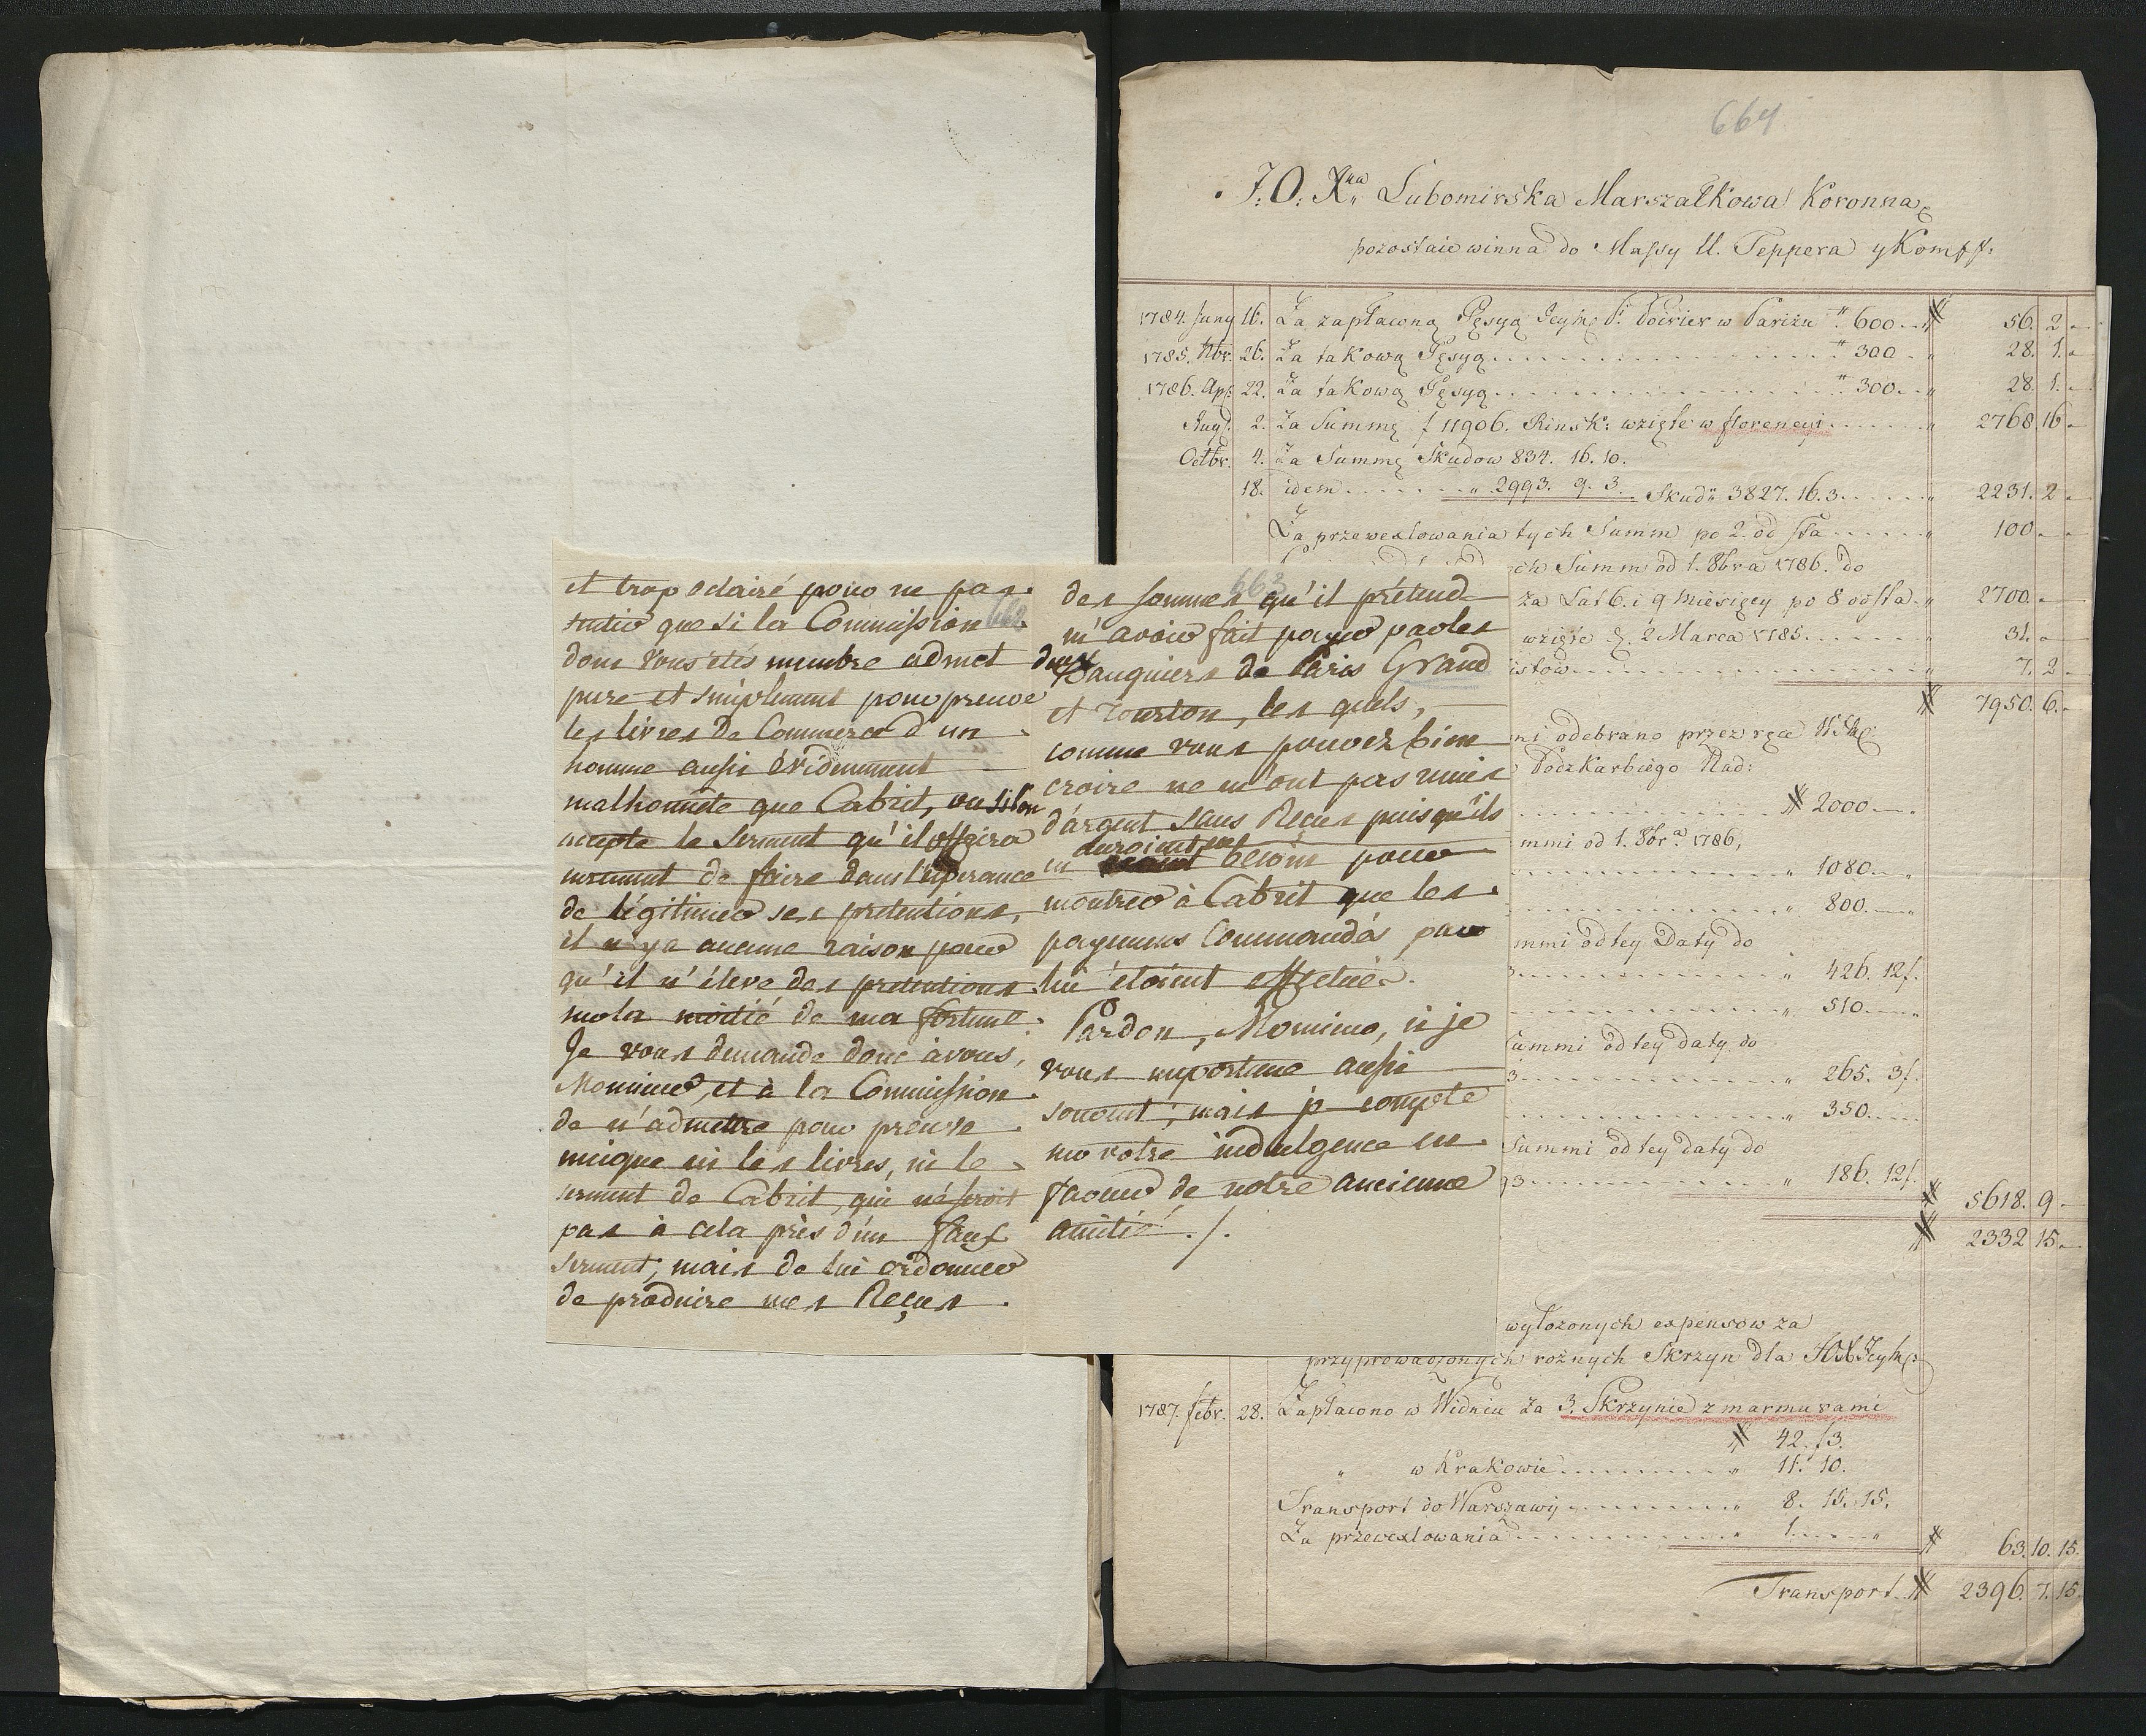 662
et trop eclairé pour ne pas
sentir que si la Commission
dont vous etés membre admet
pure et simplement pour preuve
les livres de Commerce d'un
homme aussi évidemment
malhonnête que Cabrit, ou si l'on
accepte le serment qu'il offrira
surement de faire dans l'espérance
de légitimer ses pretentions,
il n'y a aucune raison pour
qu'il n'éleve des pretentions
sur la moitié de ma fortune.
Je vous demande donc à vous,
Monsieur, et à la Commission
de n'admettre pour preuve
unique ni les livres, ni le
serment de Cabrit, qui n'est
pas à cela près d'un faux
serment, mais de lui ordonner
de produire mes Reçus
663
des sommes qu'il prétend
m'avoir fait payer par les
deux Banquiers de Paris Grand
et Tourton, les quels,
comme vous pouvez bien
croire ne m'ont pas remis
d'argent sans Recus puisqu'ils
en auroient eu besoin pour
montrer à Cabrit que les
payemens Commandés par
lui étoient effectués.
Pardon, Monsieur, si je
vous importune aussi
souvent; mais je compte
sur votre indulgence en
faveur de notre ancienne
amitié ./.
664
J: O: Xna Lubomirska Marszałkowa Koronna
pozostaie winna do Massy U. Teppera y Komp:
1784. Juny 16. Za zapłaconą Pęsyą Jeymć P. Poirier w Pariżu " 600 " 56. 2
1785. Nbr. 26. Za takową Pęsyą " 300 " 28. 1.
1786. Apr: 22. Za takową Pęsyą " 300 " 28. 1.
Aug. 2. Za Summę f 11906. Rinsk: wzięte w florencyi " 2768 16
Octbr. 4. Za Summę Skudow 834. 16. 10.
18. idem " 2993. 9. 3. Skud: 3827. 16. 3. " 2231. 2
Za przewexlowania tych Summ po 2. od sta " 100
ch Summ od 1. 8bra 1786. do
za Lat 6. i 9 Miesięcy po 8 od sta " 2700.
wzięte d. 2 Marca 1785. " 31.
istow " 7. 2
7950. 6.
ni odebrano przez ręce WJM
Podzkarbiego Nad:
2000
mmi od 1. 8bra 1786,
" 1080
" 800.
mmi od tey Daty do
" 426. 12/.
" 510
Summi od tey daty do
3 " 265. 3/.
" 350
Summi od tey daty do
93 " 186. 12/.
5618. 9
2332 15
wyłożonych expensow za
przyprowadzonych rożnych Skrzyn dla JOX Jeymć:
1787. febr. 28. Zapłacono w Widniu za 3. Skrzynie z marmurami
42. 13.
" w Krakowie " 11. 10.
Transport do Warszawy " 8. 15. 15.
Za przewexlowania " 1. " 63. 10. 15.
Transport 2396. 7. 15